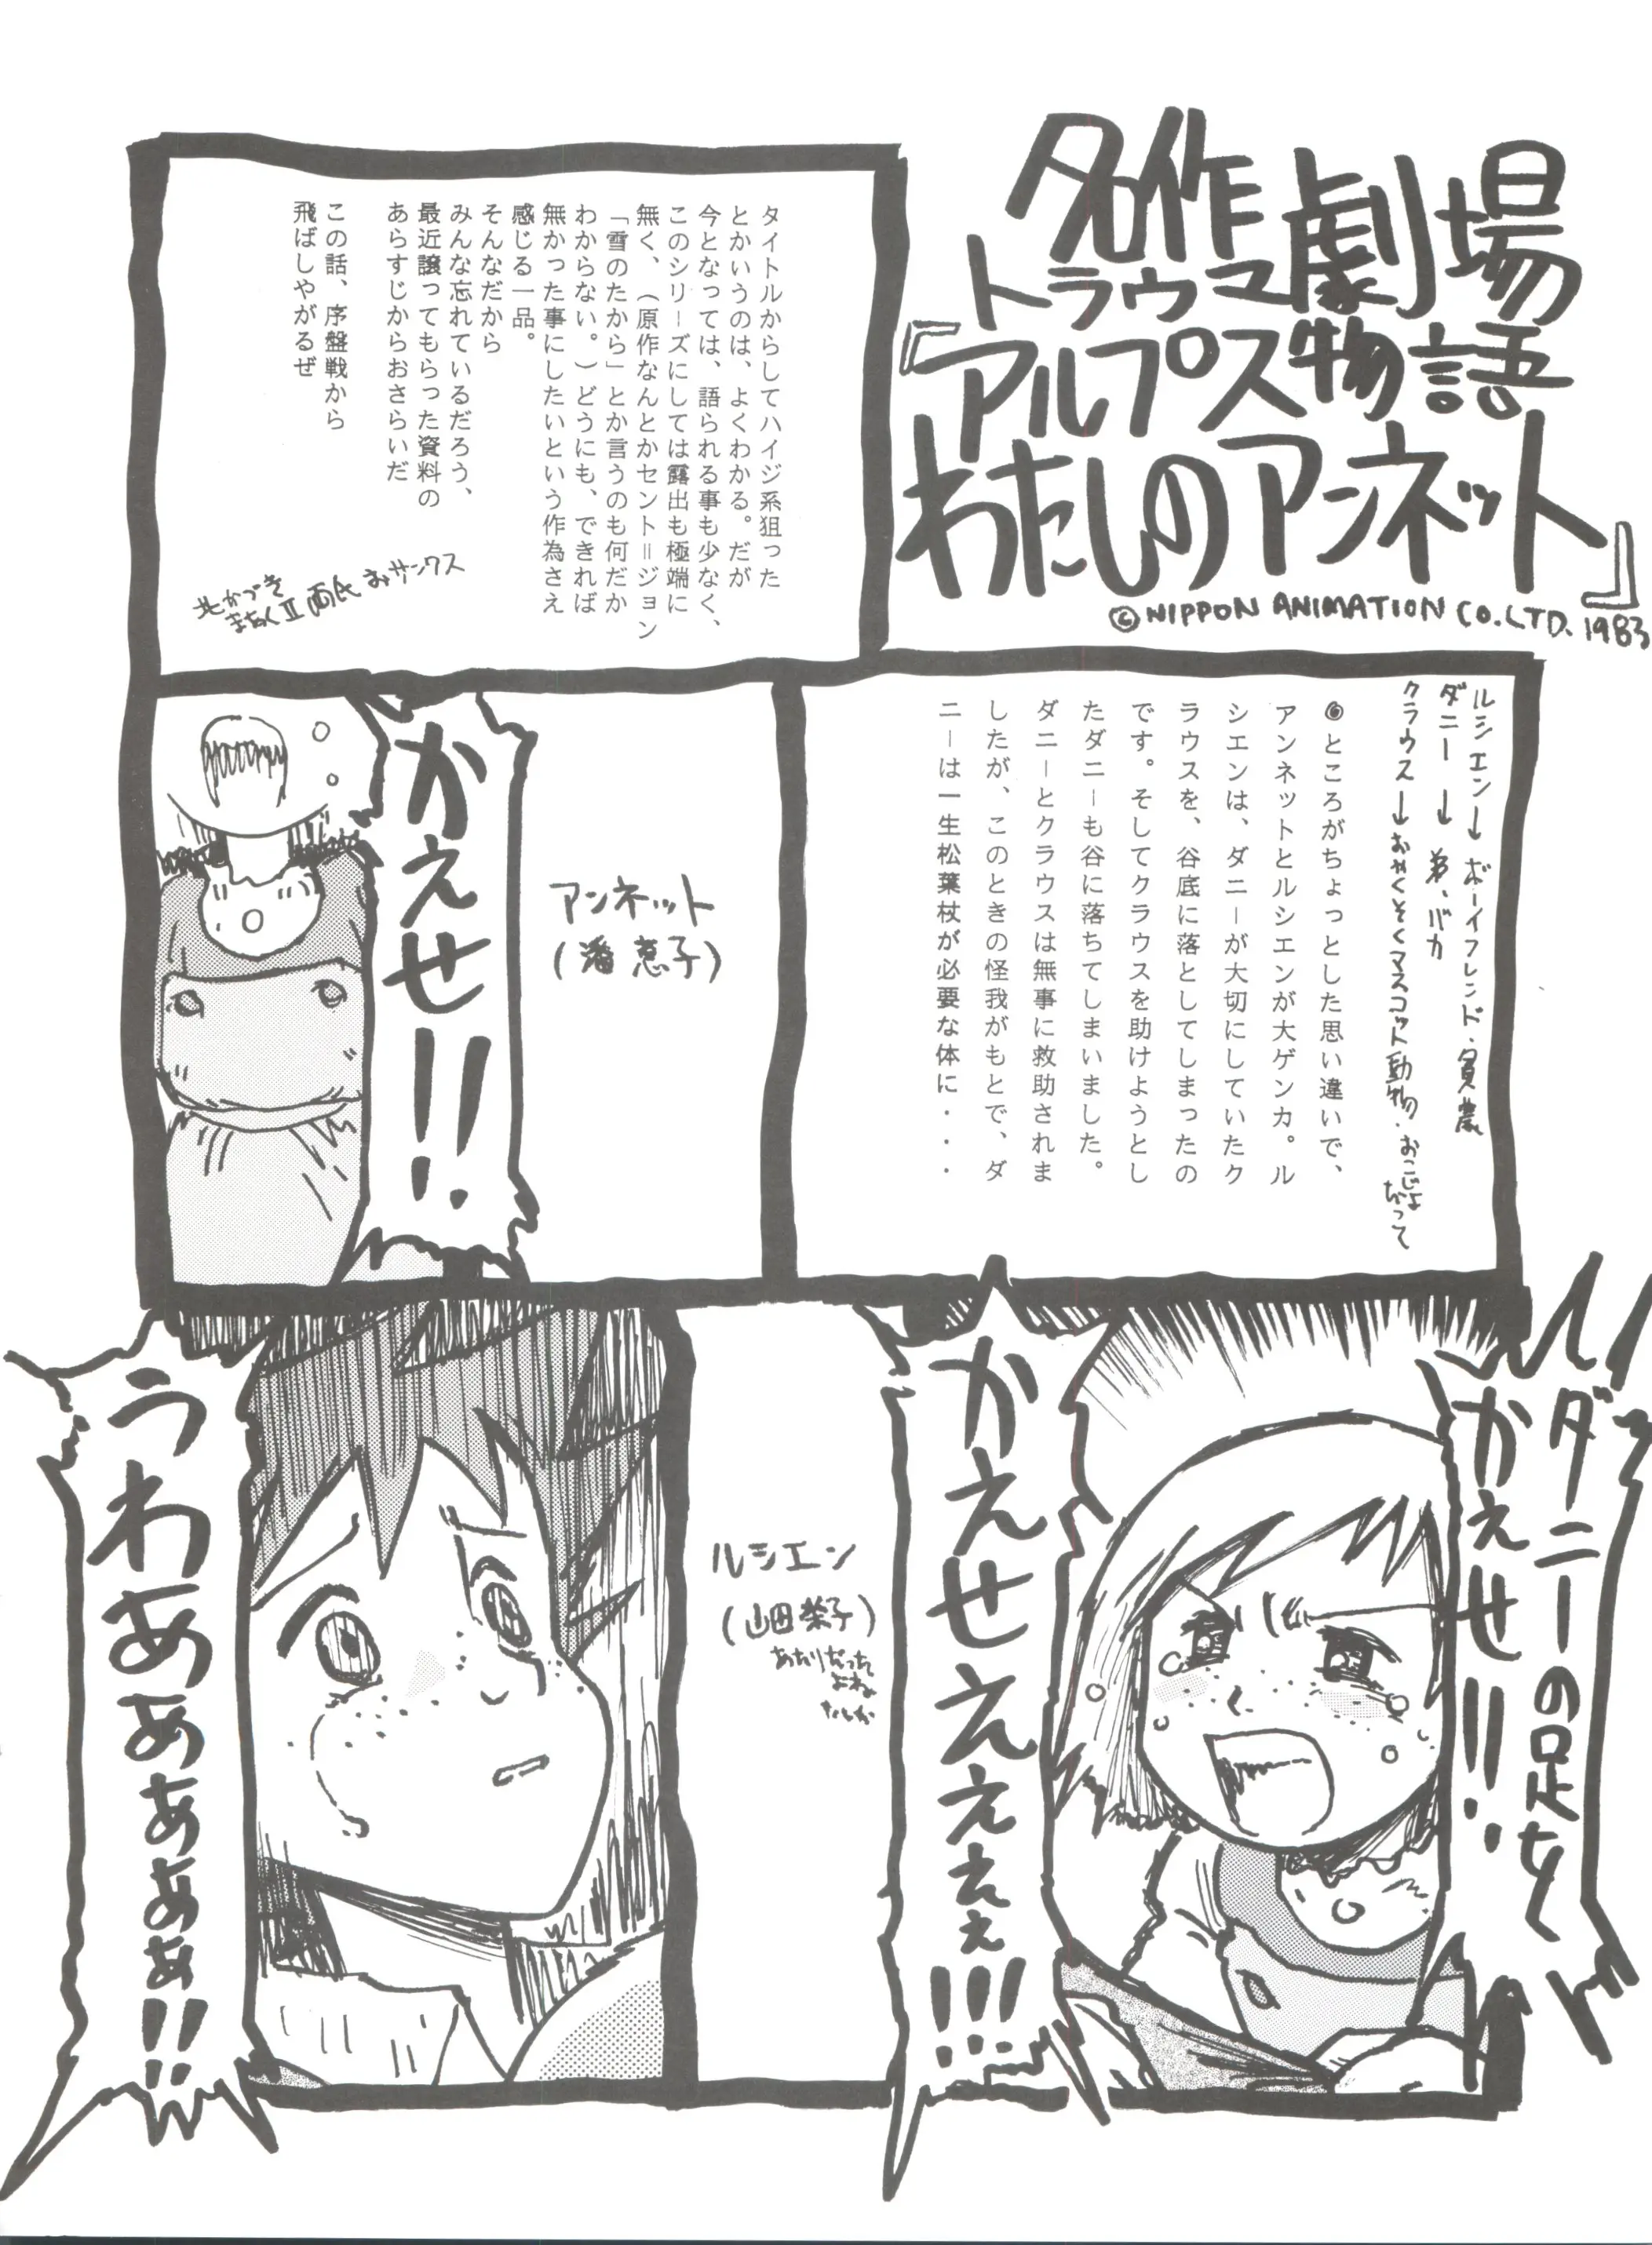 名作
トラウマ劇場
『アルプス物語
わたしのアンネット』
©NIPPON ANIMATION CO.LTD. 1983
タイトルからしてハイジ系狙った
とかいうのは、よくわかる。だが
今となっては、語られる事も少なく、
このシリーズにしては露出も極端に
無く、（原作なんとかセント＝ジョン
「雪のたから」とか言うのも何だか
わからない。）どうにも、できれば
無かった事にしたいという作為さえ
感じる一品。
そんなだから
みんな忘れているだろう、
最近譲ってもらった資料の
あらすじからおさらいだ
この話、序盤戦から
飛ばしやがるぜ
北かづき
画氏 おサンクス
ルシエン→ボーイフレンド・貧農
ダニー→弟、バカ
クラウス→おやくそくマスコット動物・おこじょ
だって
◉ところがちょっとした思い違いで、
アンネットとルシエンが大ゲンカ。ル
シエンは、ダニーが大切にしていたク
ラウスを、谷底に落としてしまったの
です。そしてクラウスを助けようとし
たダニーも谷に落ちてしまいました。
ダニーとクラウスは無事に救助されま
したが、このときの怪我がもとで、ダ
ニーは一生松葉杖が必要な体に・・・
アンネット
(潘恵子)
かえせ!!
ダニーの足を
かぇせ!!
かえせええぇぇぇ!!!
ルシエン
(山田栄子)
あたりだった
よねぇ
たしか
うわあぁぁぁぁ!!